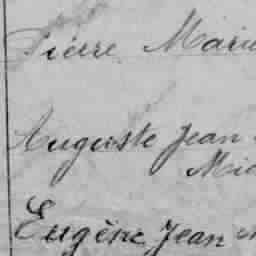 Pierre Marie
Auguste Jean
Mic
Eugène Jean M